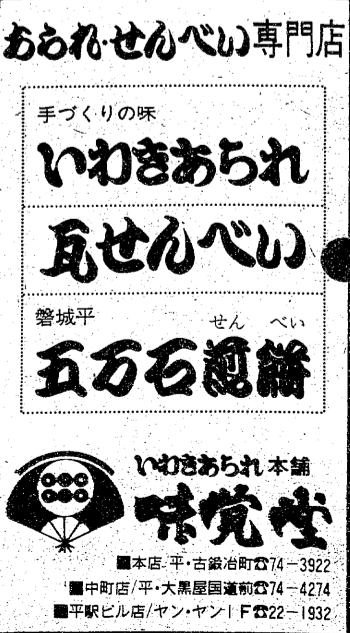 あられ・せんべい専門店
手づくりの味
いわきあられ
瓦せんべい
磐城平
せん べい
五万石煎餅
いわきあられ本舗
味覚堂
■本店 平・古鍛冶町☎74-3922
■中町店/平・大黒屋国道前☎74-4274
■平駅ビル店/ヤン・ヤン1F☎22-1932